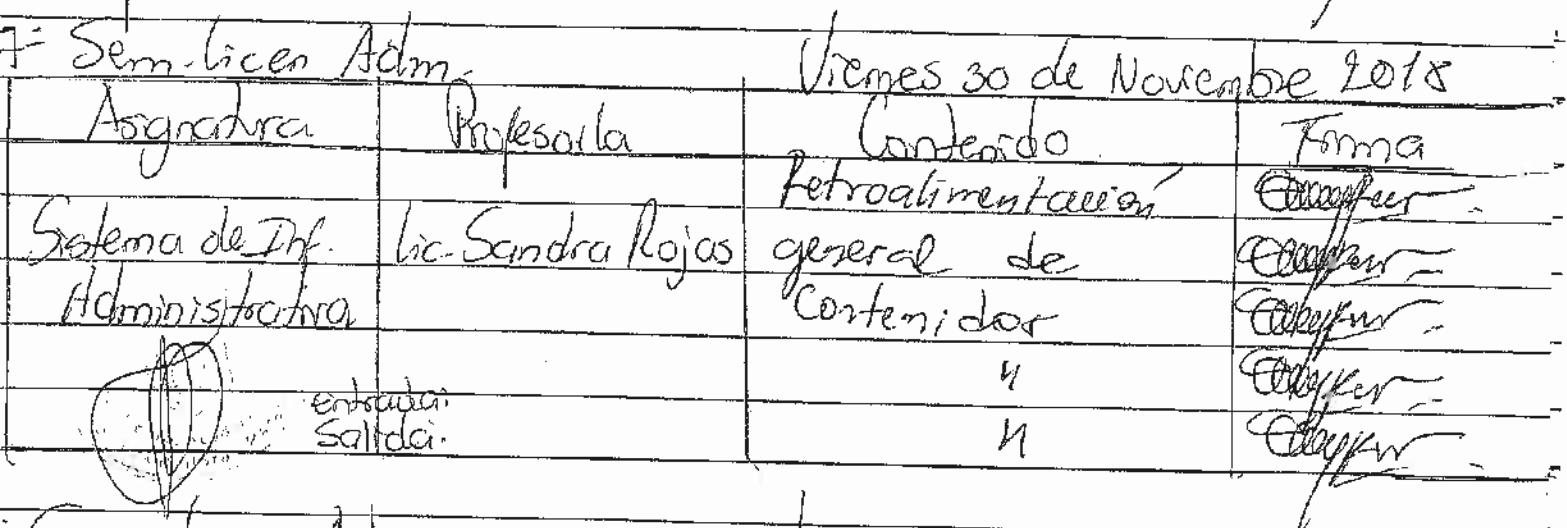 7º Sem. Licen Adm. Viernes 30 de Noviembre 2018
Asignatura Profesor/la Contenido Firma
Retroalimentación
Sistema de Inf. Lic. Sandra Rojas general de
Administrativa Contenidos
"
entrada:
Salida: "